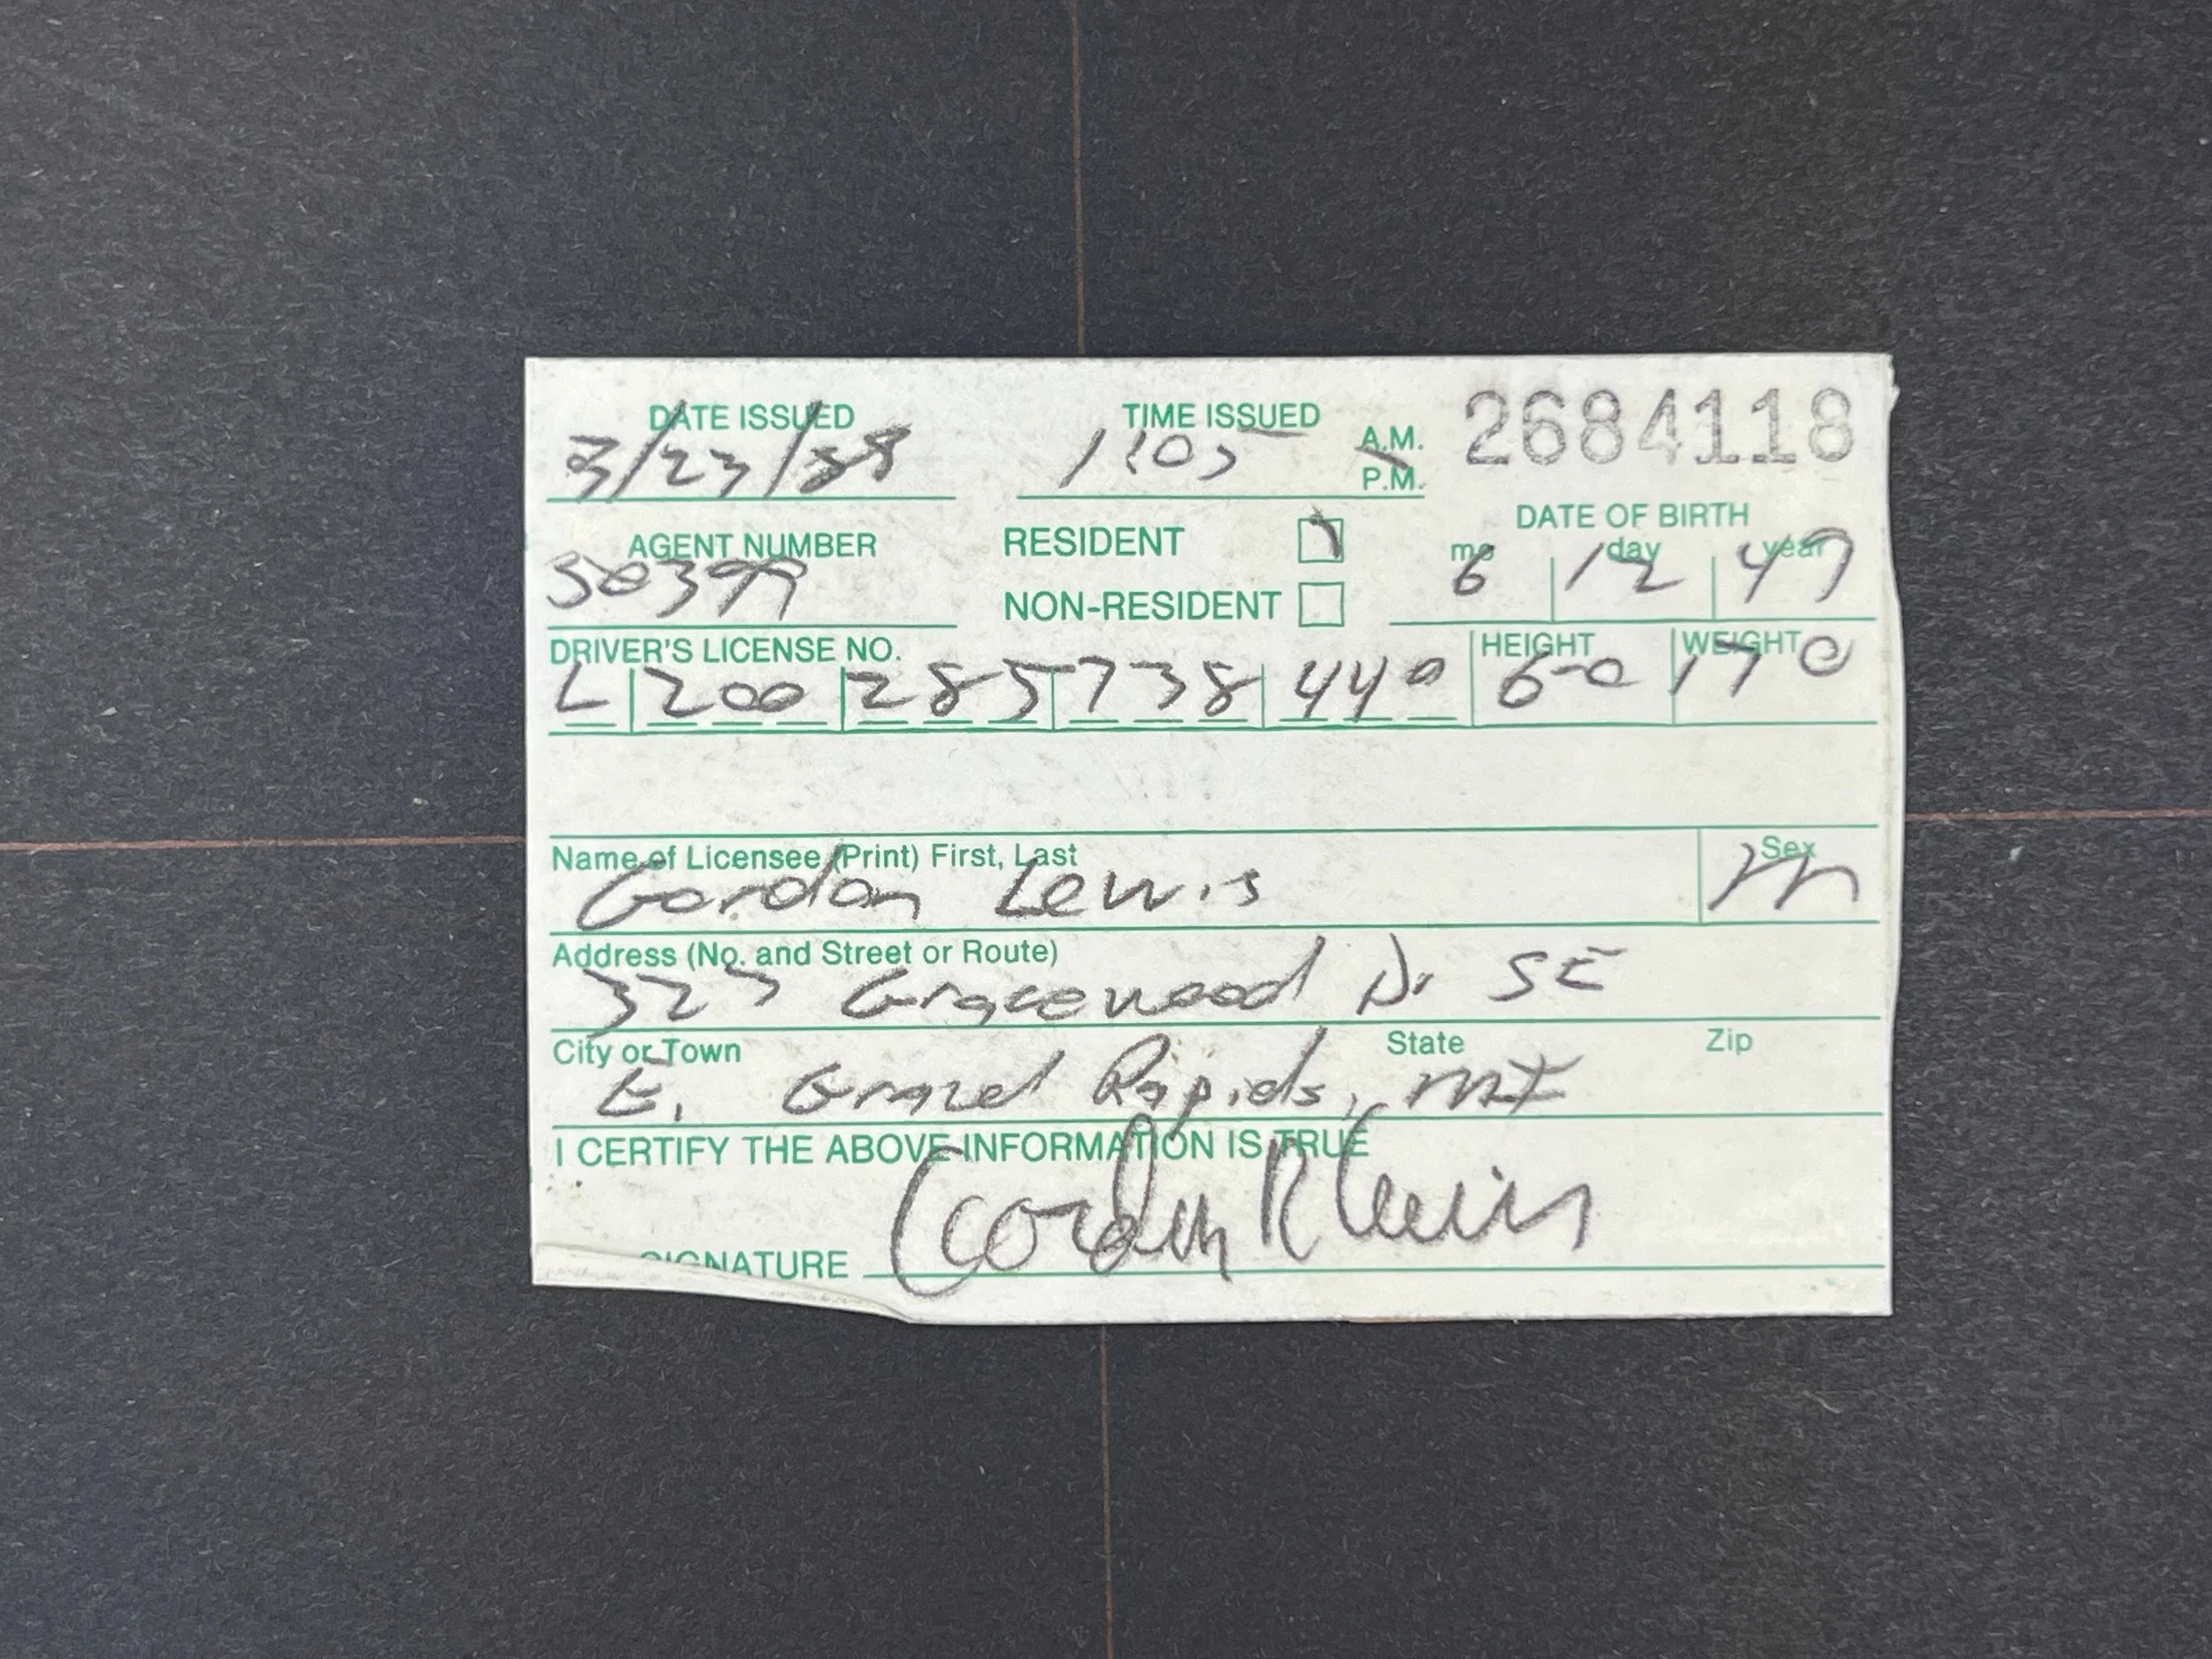 DATE ISSUED TIME ISSUED A.M. 2684118
3/23/88 1:05 P.M.
AGENT NUMBER RESIDENT DATE OF BIRTH
50399 NON-RESIDENT mo day year
6 12 47
DRIVER'S LICENSE NO. HEIGHT WEIGHT
L 200 285 738 440 6-0 170
Name of Licensee (Print) First, Last Sex
Gordon Lewis M
Address (No. and Street or Route)
323 Gracewood Dr SE
City or Town State Zip
E. Grand Rapids, MI
I CERTIFY THE ABOVE INFORMATION IS TRUE
SIGNATURE Gordon R Lewis